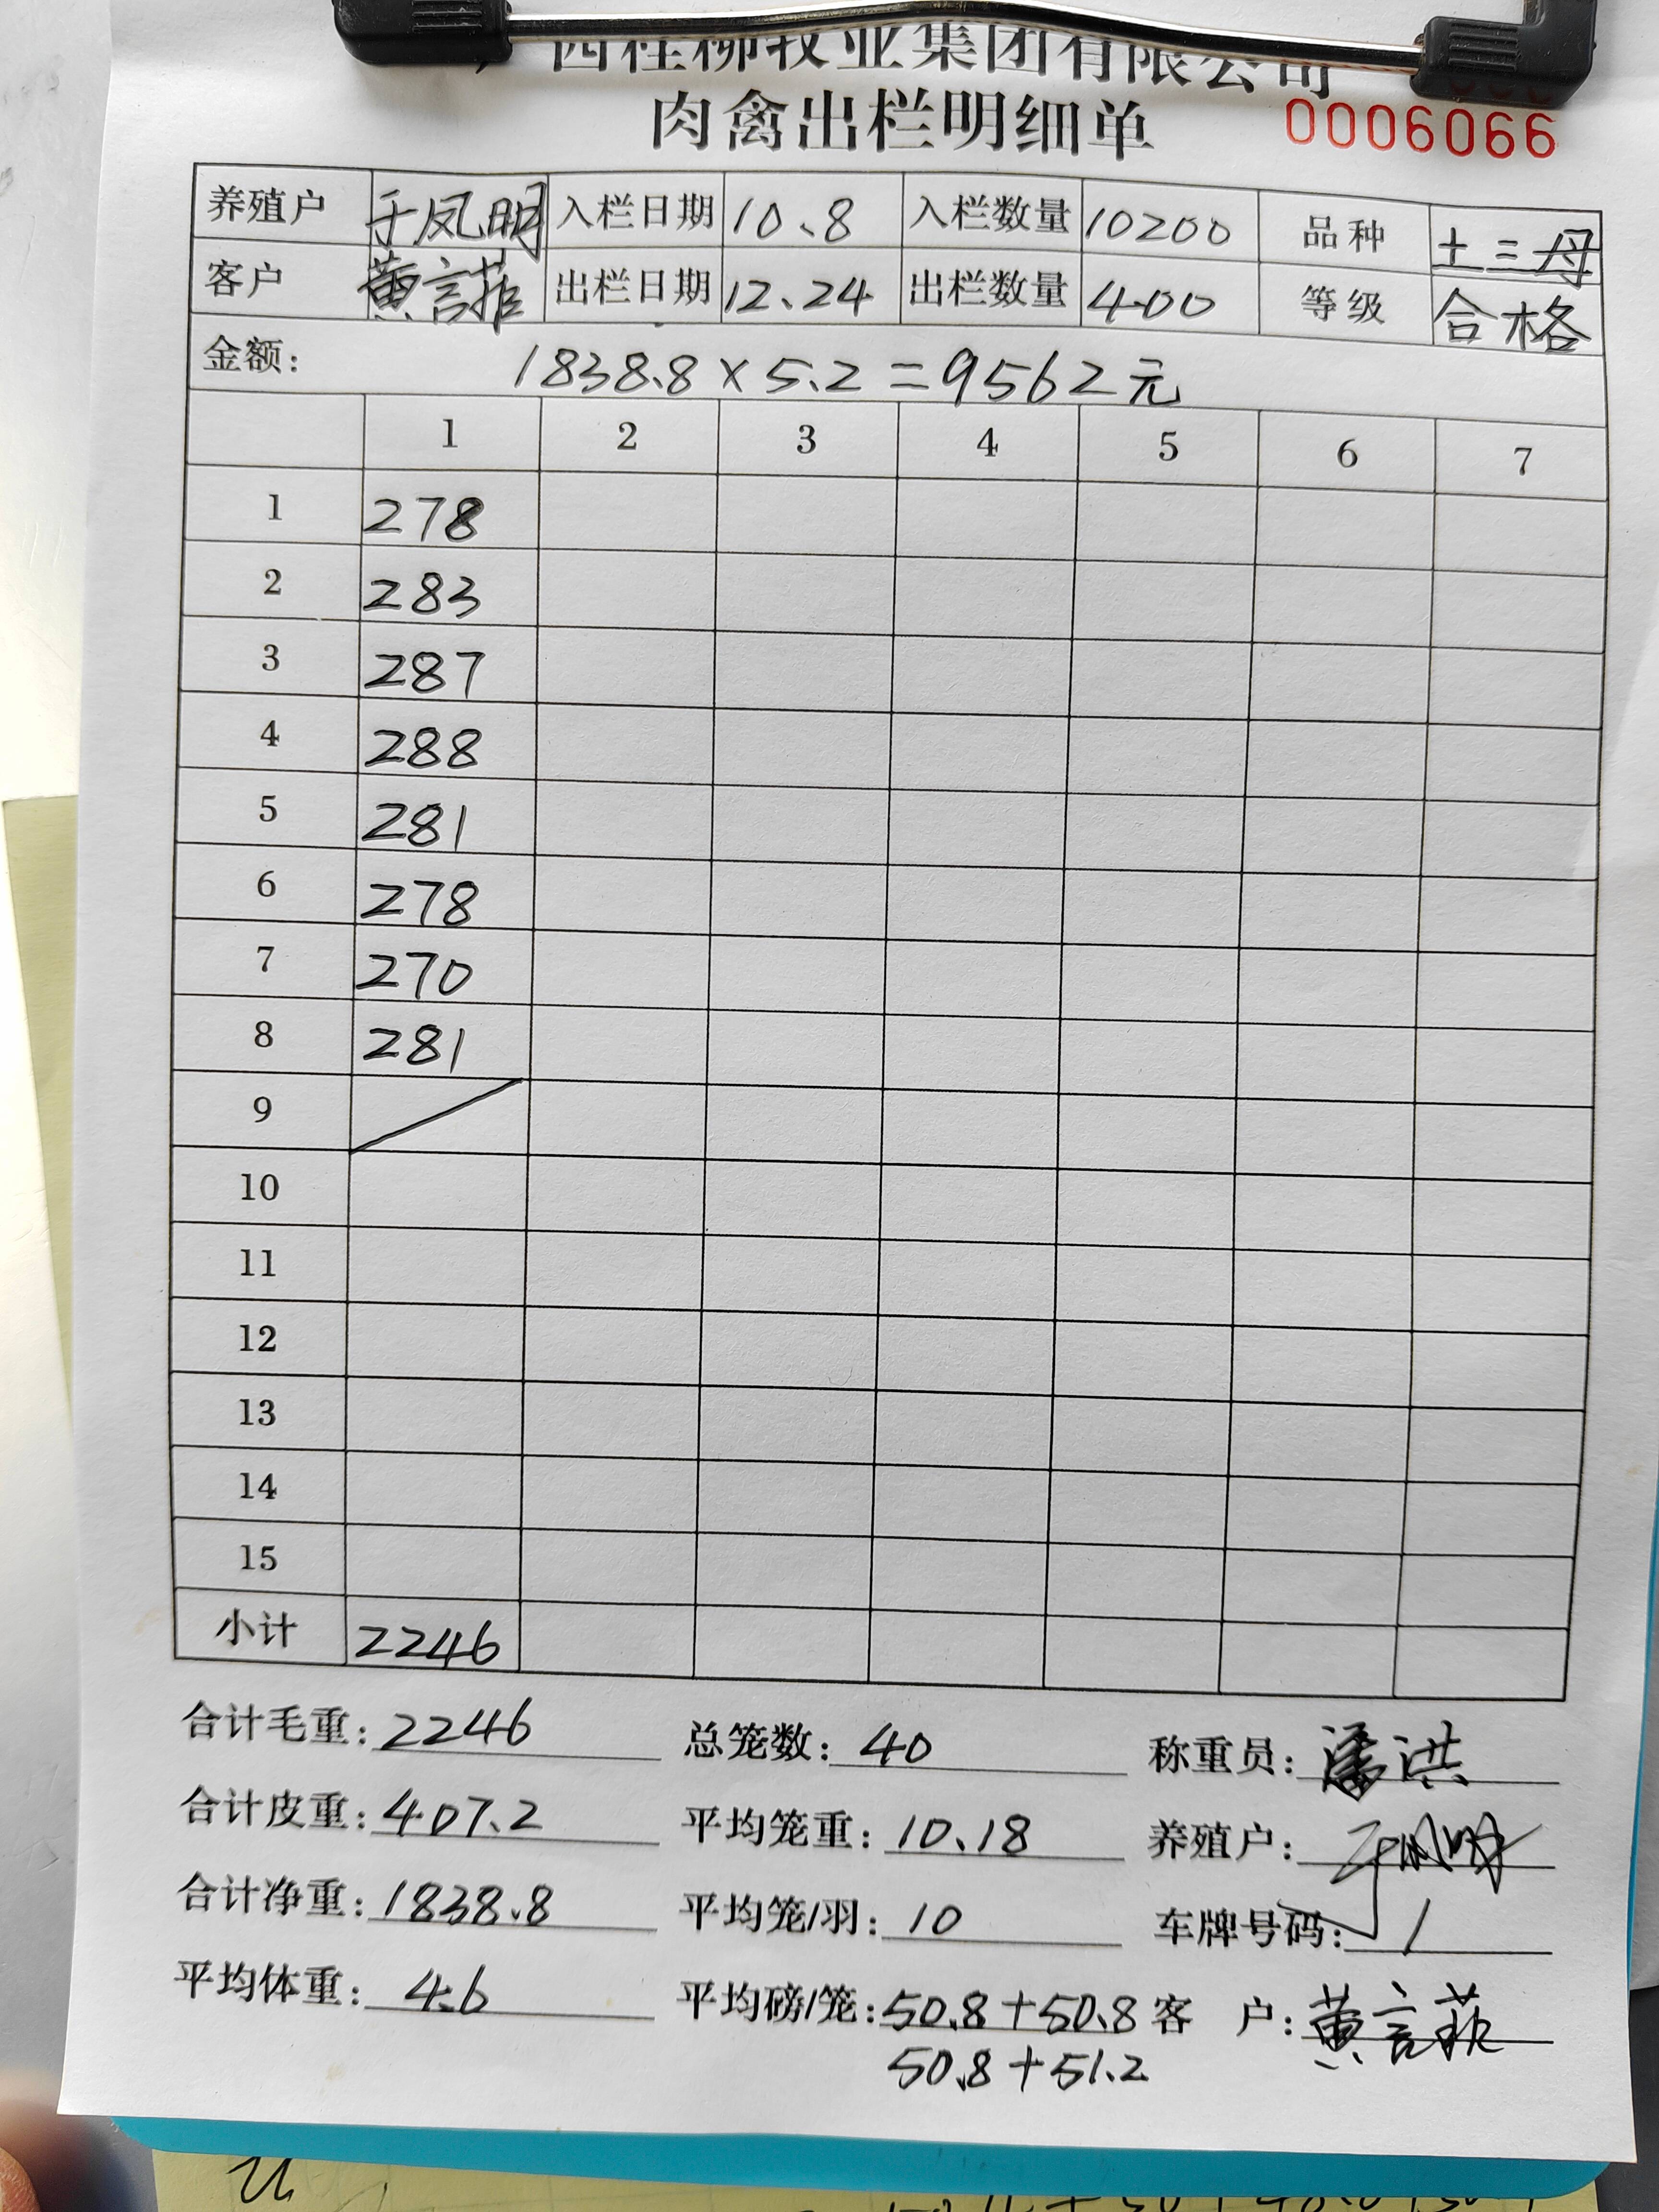 西桂柳牧业集团有限公司
肉禽出栏明细单 0006066
养殖户 于凤明 入栏日期 10.8 入栏数量 10200 品种 土三母
客户 黄言菰 出栏日期 12.24 出栏数量 400 等级 合格
金额: 1838.8×5.2=9562元
1 2 3 4 5 6 7
1 278
2 283
3 287
4 288
5 281
6 278
7 270
8 281
9
10
11
12
13
14
15
小计 2246
合计毛重: 2246 总笼数: 40 称重员: 潘洪
合计皮重: 407.2 平均笼重: 10.18 养殖户: 于凤明
合计净重: 1838.8 平均笼/羽: 10 车牌号码: /
平均体重: 4.6 平均磅/笼: 50.8+50.8 客 户: 黄言菰
50.8+51.2